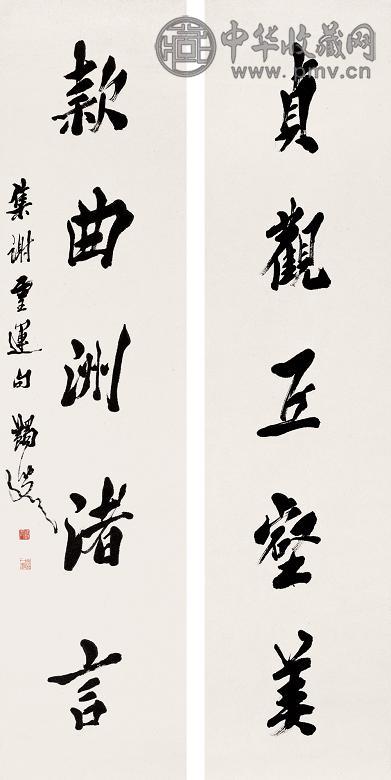 中华收藏网
www.pmv.cn
貞觀丘壑美
款曲洲渚言
集謝靈運句 蠲